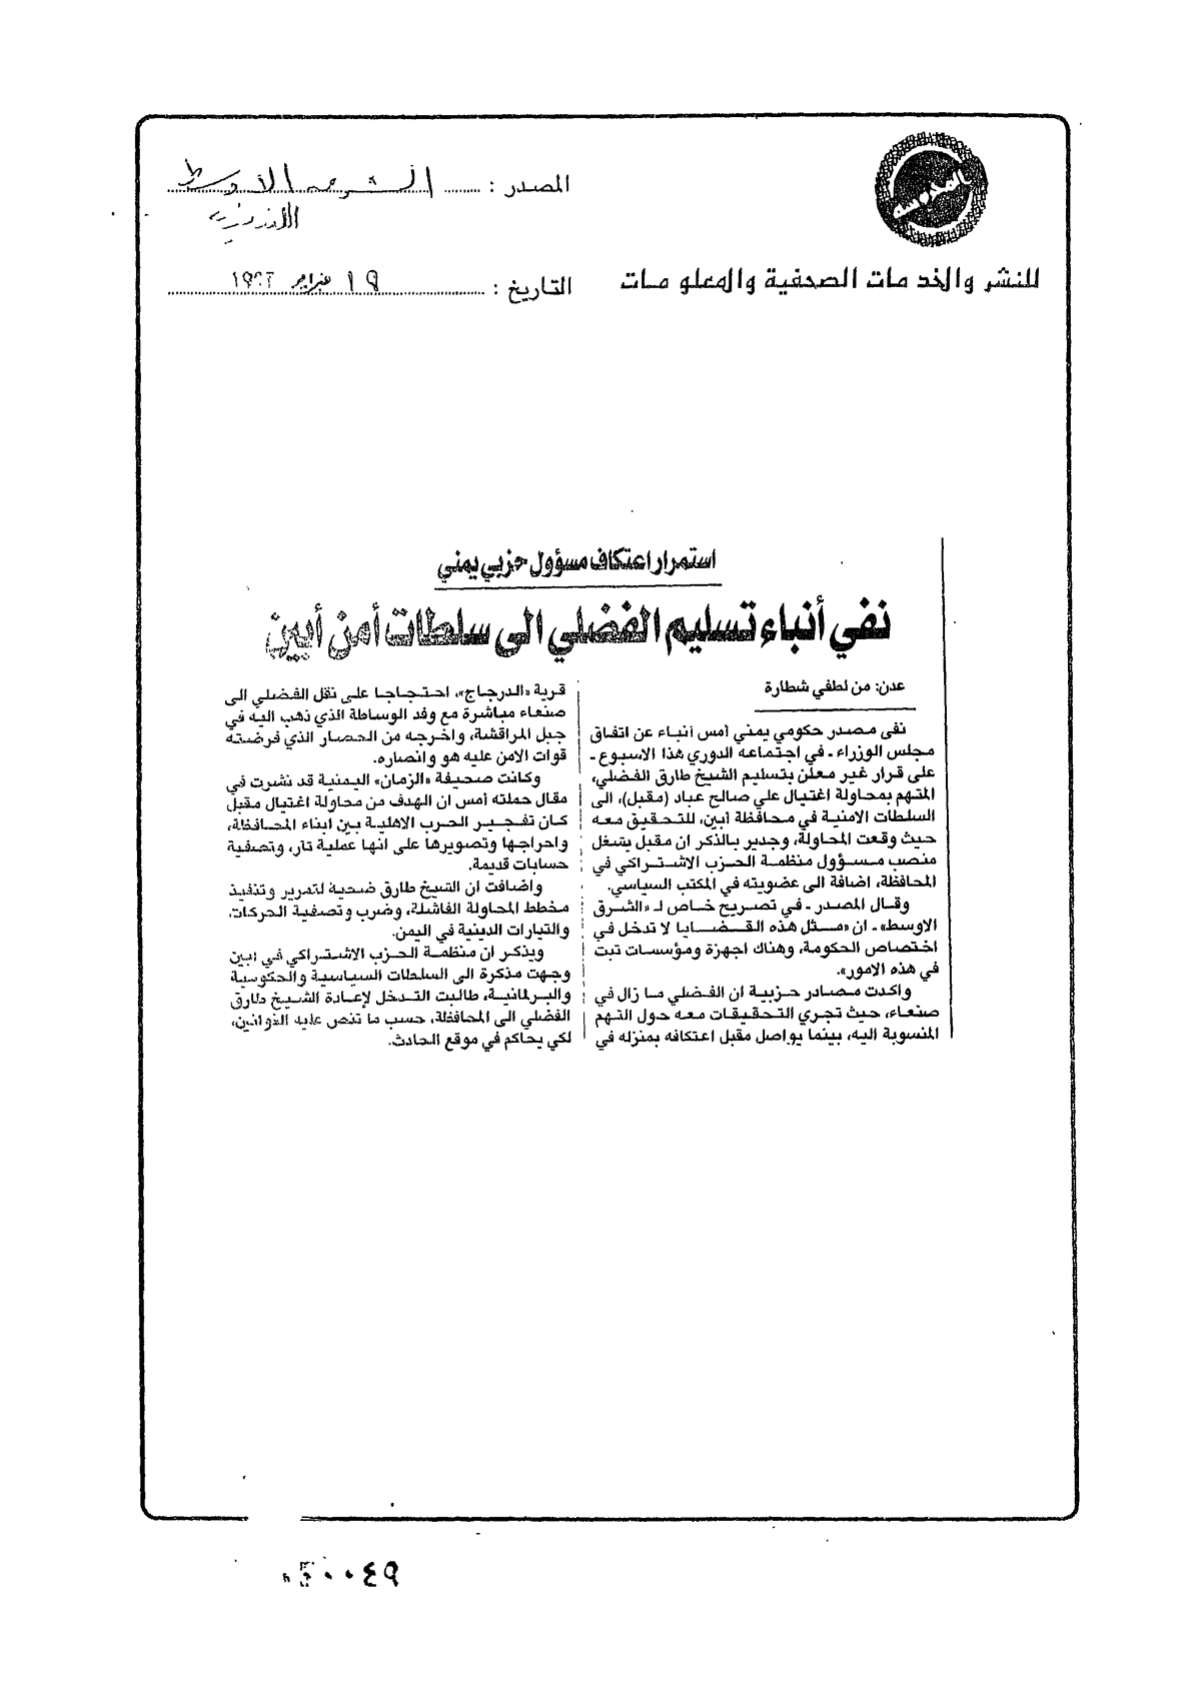 المصدر : الشرق الأوسط
اللندنية
التاريخ : ١٩ فبراير
للنشر والخدمات الصحفية والمعلومات
استمرار اعتكاف مسؤول حزبي يمني
نفي أنباء تسليم الفضلي الى سلطات أمن أبين
عدن: من لطفي شطارة
نفى مصدر حكومي يمني أمس أنباء عن اتفاق
مجلس الوزراء ـ في اجتماعه الدوري هذا الاسبوع ـ
على قرار غير معلن بتسليم الشيخ طارق الفضلي،
المتهم بمحاولة اغتيال علي صالح عباد (مقبل)، الى
السلطات الامنية في محافظة أبين، للتحقيق معه
حيث وقعت المحاولة، وجدير بالذكر ان مقبل يشغل
منصب مسؤول منظمة الحزب الاشتراكي في
المحافظة، اضافة الى عضويته في المكتب السياسي.
وقال المصدر ـ في تصريح خاص لـ «الشرق
الاوسط» ـ ان «مثل هذه القضايا لا تدخل في
اختصاص الحكومة، وهناك اجهزة ومؤسسات تبت
في هذه الامور».
واكدت مصادر حزبية ان الفضلي ما زال في
صنعاء، حيث تجري التحقيقات معه حول التهم
المنسوبة اليه، بينما يواصل مقبل اعتكافه بمنزله في
قرية «الدرجاج»، احتجاجا على نقل الفضلي الى
صنعاء مباشرة مع وفد الوساطة الذي ذهب اليه في
جبل المراقشة، واخرجه من الحصار الذي فرضته
قوات الامن عليه هو وانصاره.
وكانت صحيفة «الزمان» اليمنية قد نشرت في
مقال حملته أمس ان الهدف من محاولة اغتيال مقبل
كان تفجير الحرب الاهلية بين ابناء المحافظة،
واحراجها وتصويرها على انها عملية ثار، وتصفية
حسابات قديمة.
واضافت ان الشيخ طارق ضحية لتمرير وتنفيذ
مخطط المحاولة الفاشلة، وضرب وتصفية الحركات
والتيارات الدينية في اليمن.
ويذكر ان منظمة الحزب الاشتراكي في ابين
وجهت مذكرة الى السلطات السياسية والحكومية
والبرلمانية، طالبت التدخل لإعادة الشيخ طارق
الفضلي الى المحافظة، حسب ما تنص عليه القوانين،
لكي يحاكم في موقع الحادث.